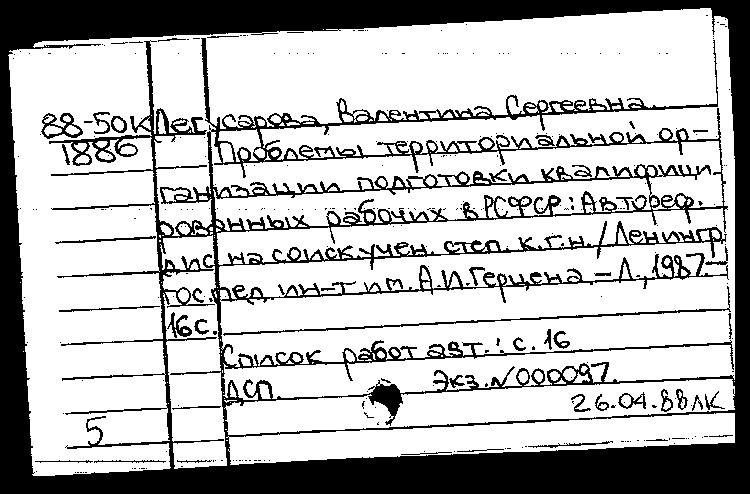 88-50к Легусарова, Валентина Сергеевна.
1886 Проблемы территориальной ор-
ганизации подготовки квалифици-
рованных рабочих в РСФСР: Автореф.
дис на соиск. учен. степ. к.г.н. / Ленингр
гос. пед. ин-т им. А.И. Герцена. – Л., 1987. –
16 с.
Список работ авт.: с. 16
ДСП. Экз. N 000097.
26.04.88 ЛК
5